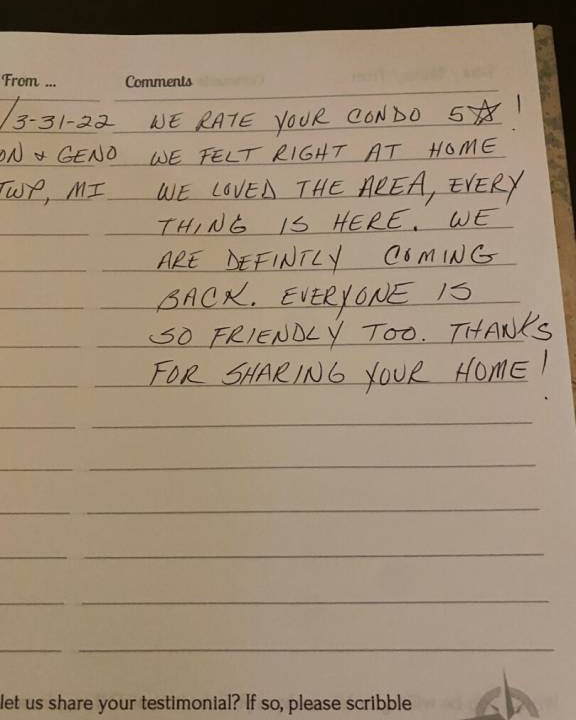 From ... Comments
/3-31-22 WE RATE YOUR CONDO 5☆!
ON & GENO WE FELT RIGHT AT HOME
TWP, MI WE LOVED THE AREA, EVERY
THING IS HERE. WE
ARE DEFINTLY COMING
BACK. EVERYONE IS
SO FRIENDLY TOO. THANKS
FOR SHARING YOUR HOME!
let us share your testimonial? If so, please scribble